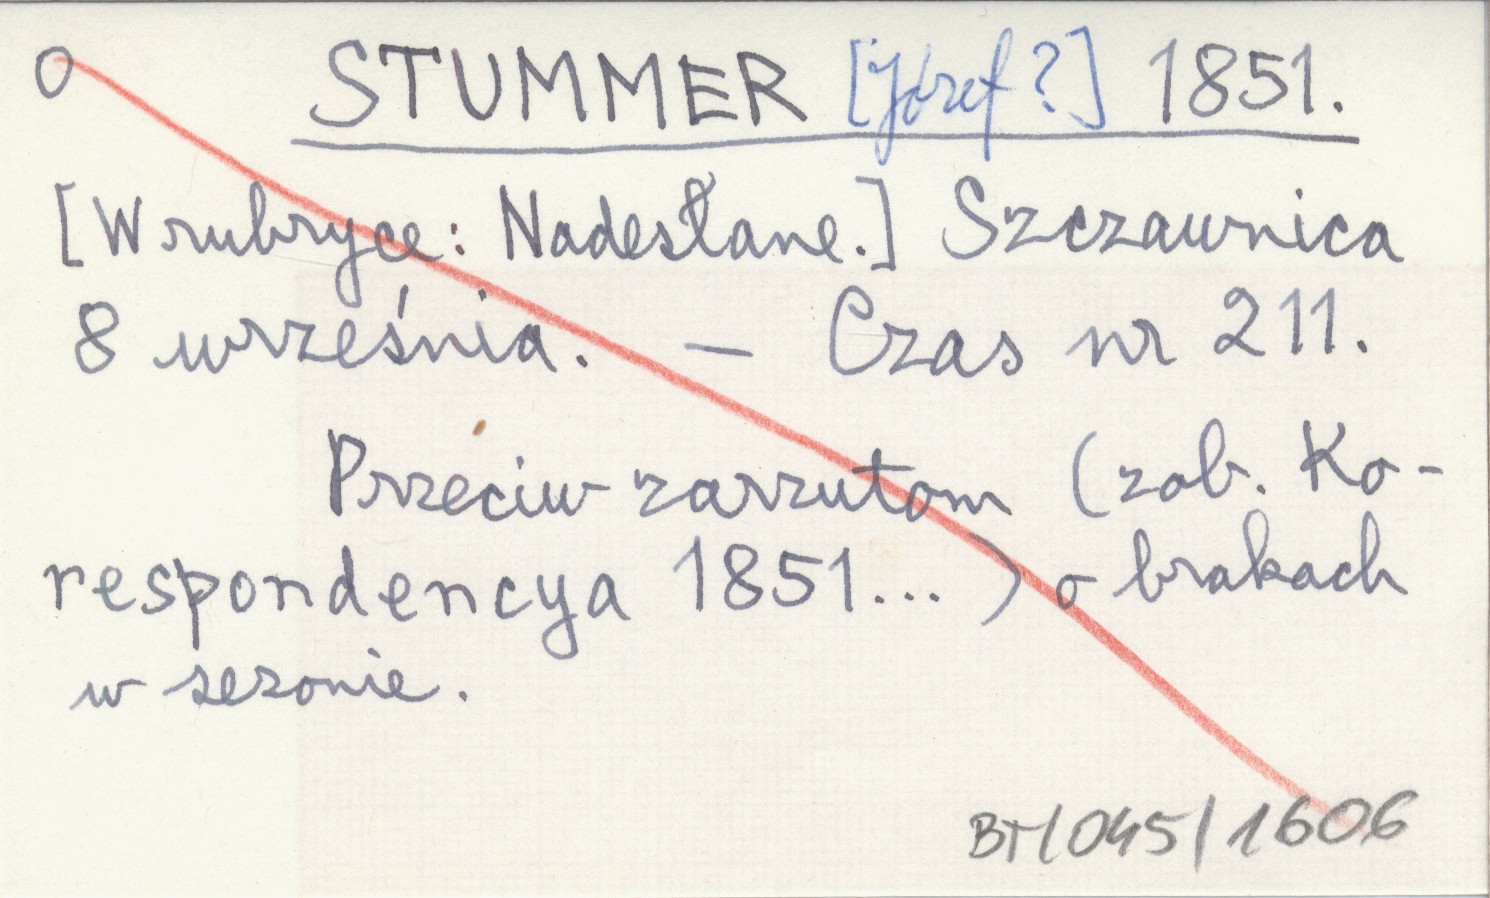 O STUMMER [Józef?] 1851.
[W rubryce: Nadesłane.] Szczawnica
8 września. — Czas nr 211.
Przeciw zarzutom (zob. Ko-
respondencya 1851...) o brakach
w sezonie.
BT/045/1606